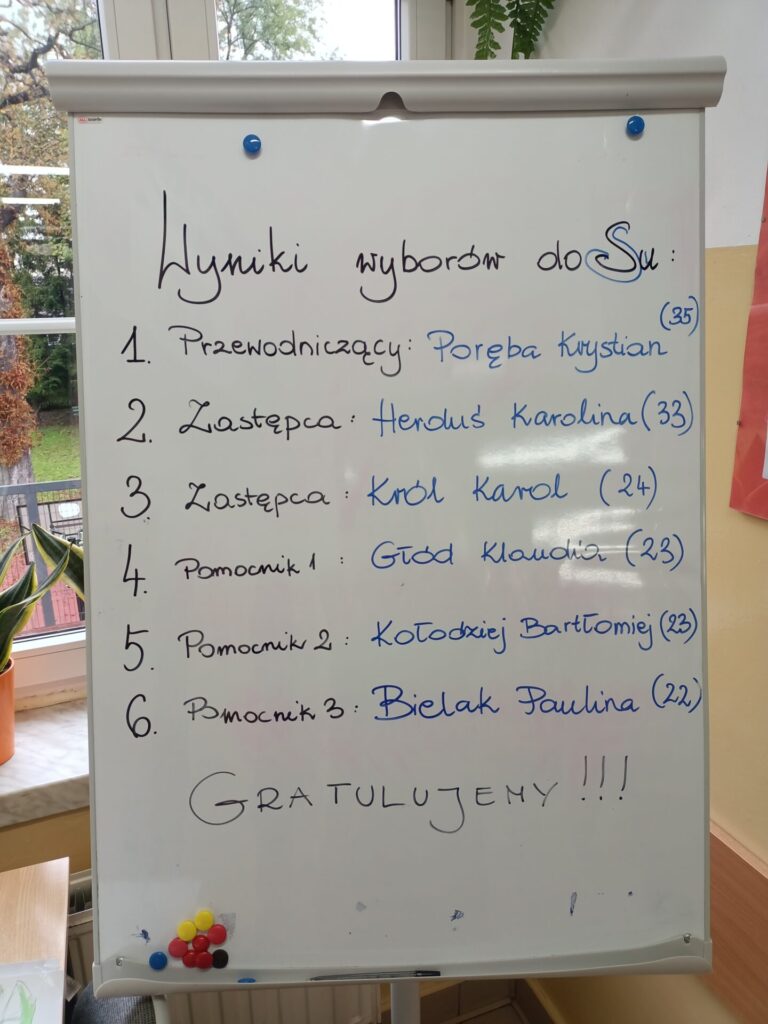 Wyniki wyborów do Su:
1. Przewodniczący: Poręba Krystian (35)
2. Zastępca: Herduś Karolina (33)
3. Zastępca: Król Karol (24)
4. Pomocnik 1: Głód Klaudia (23)
5. Pomocnik 2: Kołodziej Bartłomiej (23)
6. Pomocnik 3: Bielak Paulina (22)
GRATULUJEMY!!!